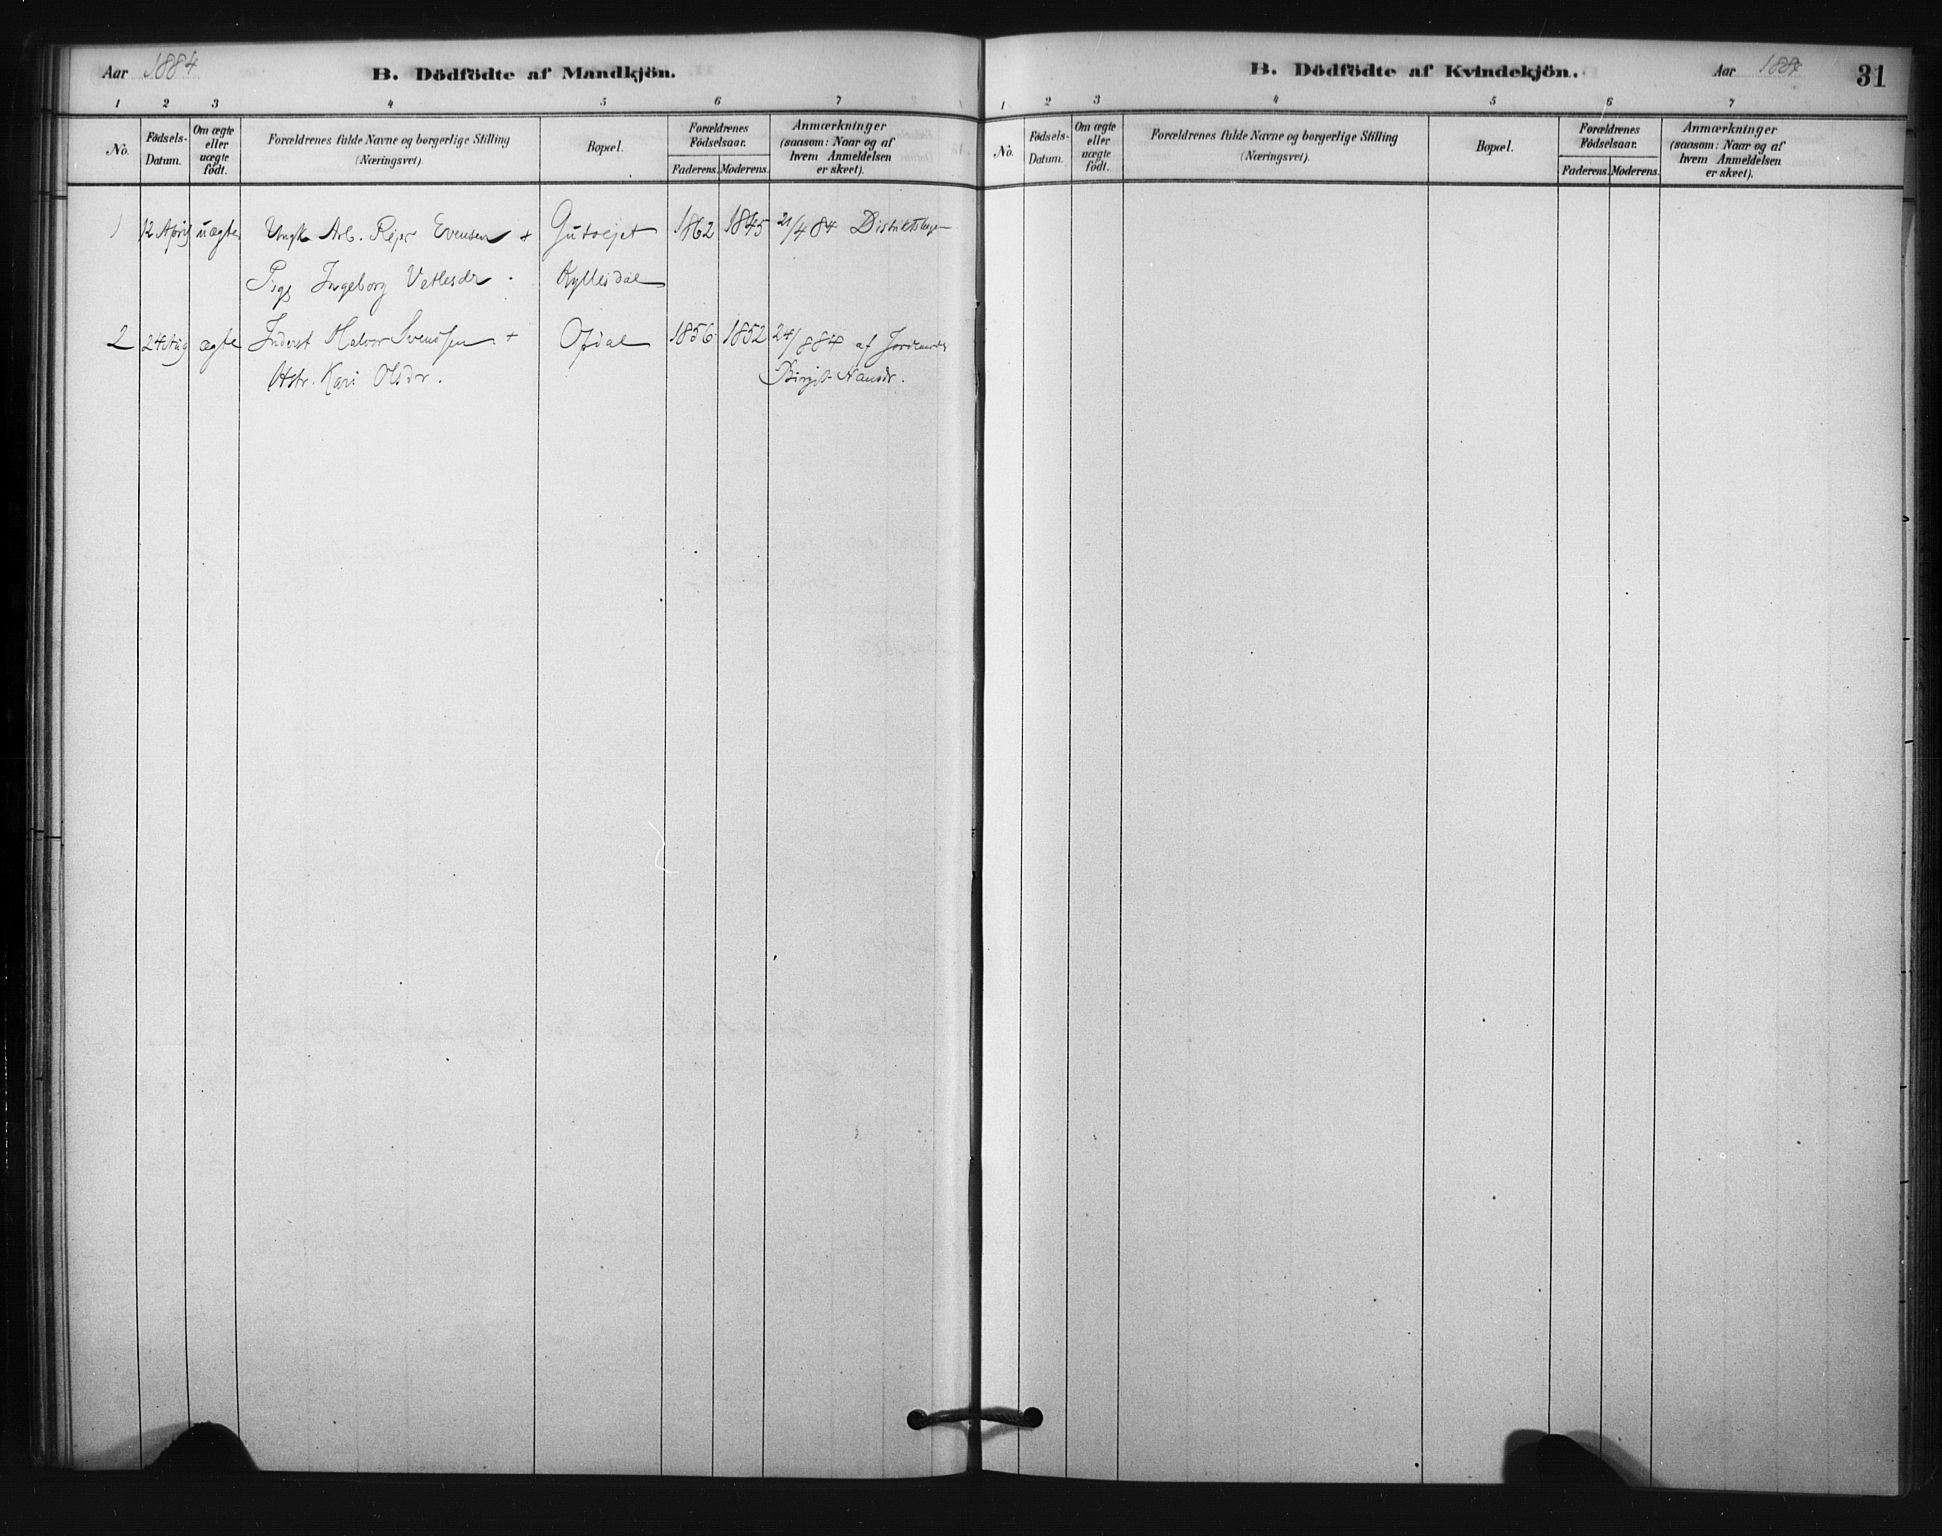 Aar 1884 B. Dödfödte af Mandkjön.
1 2 3 4 5 6 7
No. Födsels-Datum. Om ægte eller uægte födt. Forældrenes fulde Navne og borgerlige Stilling (Næringsvei). Bopæl. Forældrenes Födselsaar. Faderens. Moderens. Anmærkninger (saasom: Naar og af hvem Anmeldelsen er skeet).
1 12 April uægte Ungk. Arb. Evensen + 1862 1845 21/4 84
Pige Ingeborg Vetlesdr.
2 24 Aug ægte Inderst Halvor Svendsen + Opdal 1856 1852 24/8 84 af Jordemdr
Hstr. Kari Olsdr. Birgit
B. Dödfödte af Kvindekjön. Aar 1884 31
1 2 3 4 5 6 7
No. Födsels-Datum. Om ægte eller uægte födt. Forældrenes fulde Navne og borgerlige Stilling (Næringsvei). Bopæl. Forældrenes Födselsaar. Faderens. Moderens. Anmærkninger (saasom: Naar og af hvem Anmeldelsen er skeet).